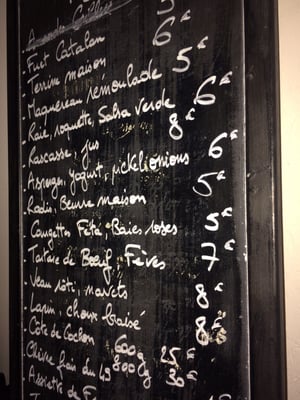 Fuet Catalan 6€
Terrine maison 5€
Maquereau rémoulade 6€
Raie, roquette, Salsa verde 8€
Rascasse, jus 6€
Asperges, yogurt, pickl onions 5€
Radis, Beurre maison 5€
Courgettes Féta, Baies roses 7€
Tartare de Boeuf, Fèves 8€
Veau rôti, navets 8€
Lapin, choux braisé
Côte de Cochon 600g 25€
800g 30€
Chèvre frais du 49
Assiette de F